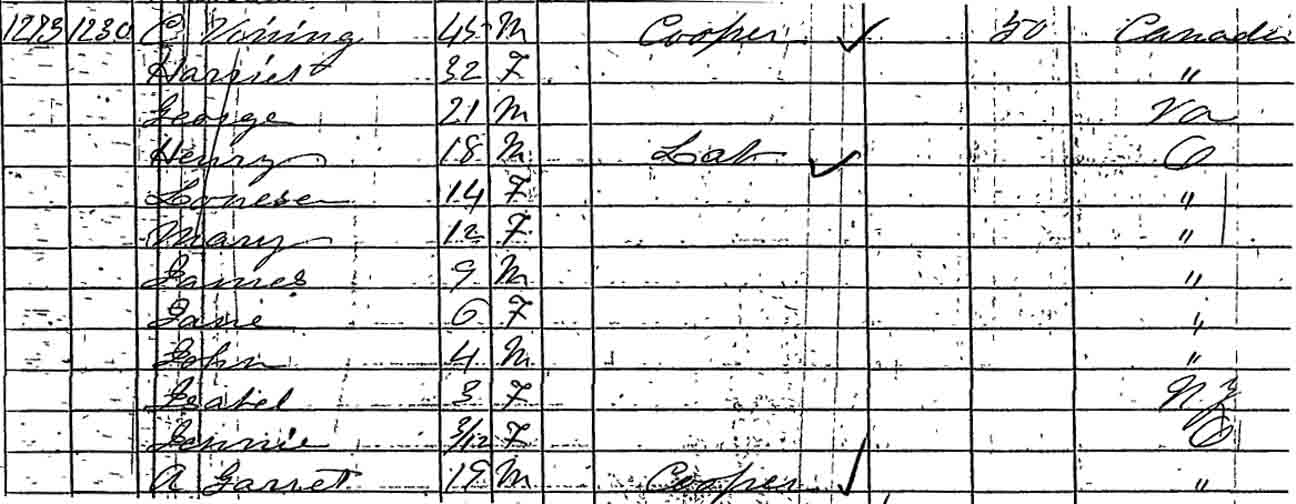 1273 1230 C Vining 45 M Cooper ✓ 50 Canada
Harriet 32 F "
George 21 M Va
Henry 18 M Lab ✓ O
Louese 14 F "
Mary 12 F "
James 9 M "
Jane 6 F "
John 4 M "
Isabel 3 F NY
Jennie 3/12 F O
A Garret 19 M Cooper ✓ "